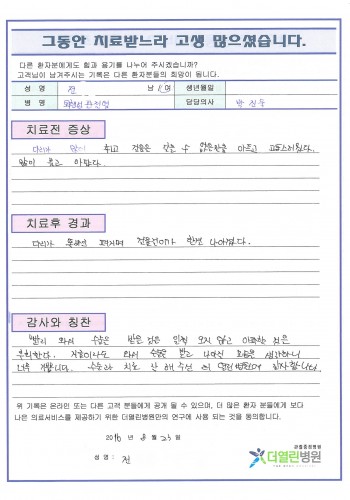 그동안 치료받느라 고생 많으셨습니다.
다른 환자분에게도 힘과 용기를 나누어 주시겠습니까?
고객님이 남겨주시는 기록은 다른 환자분들의 희망이 됩니다.
성 명 전 남 / 여 생년월일
병 명 퇴행성 관절염 담당의사 박
치료전 증상
다리가 많이 휘고 걸음은 걸을 수 없을만큼 아프고 고통스러웠다.
많이 휘고 아팠다.
치료후 경과
다리가 똑바로 펴지며 걷는것이가 한번 나아졌다.
감사와 칭찬
빨리 와서 수술을 받은 것은 일찍 오지 않고 아파한 것은
후회한다. 지금이라도 와서 수술을 받고 나아진 모습을 생각하니
너무 기쁩니다. 수술과 치료 잘 해주신 더 열린병원에 감사합니다.
위 기록은 온라인 또는 다른 고객 분들에게 공개 될 수 있으며, 더 많은 환자 분들에게 보다
나은 의료서비스를 제공하기 위한 더열린병원만의 연구에 사용 되는 것을 동의합니다.
2016 년 8 월 23 일
성 명 : 전
관절중점병원
더열린병원